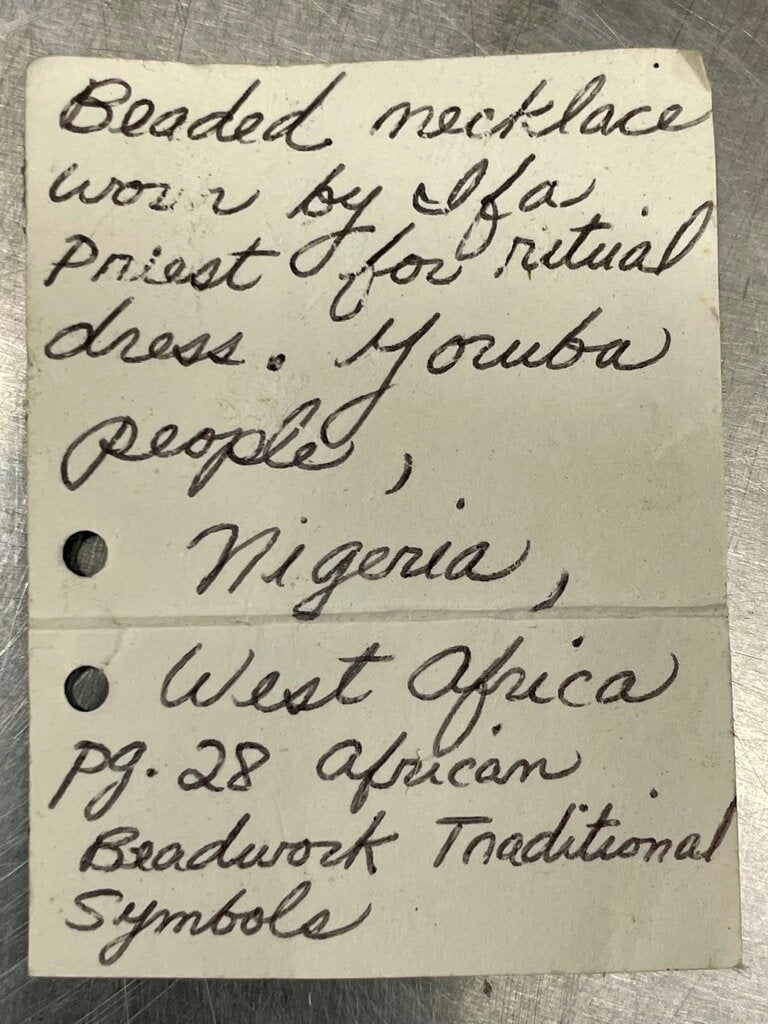 Beaded necklace
worn by Ifa
Priest for ritual
dress. Yoruba
people,
Nigeria,
West Africa
pg. 28 African
Beadwork Traditional
Symbols